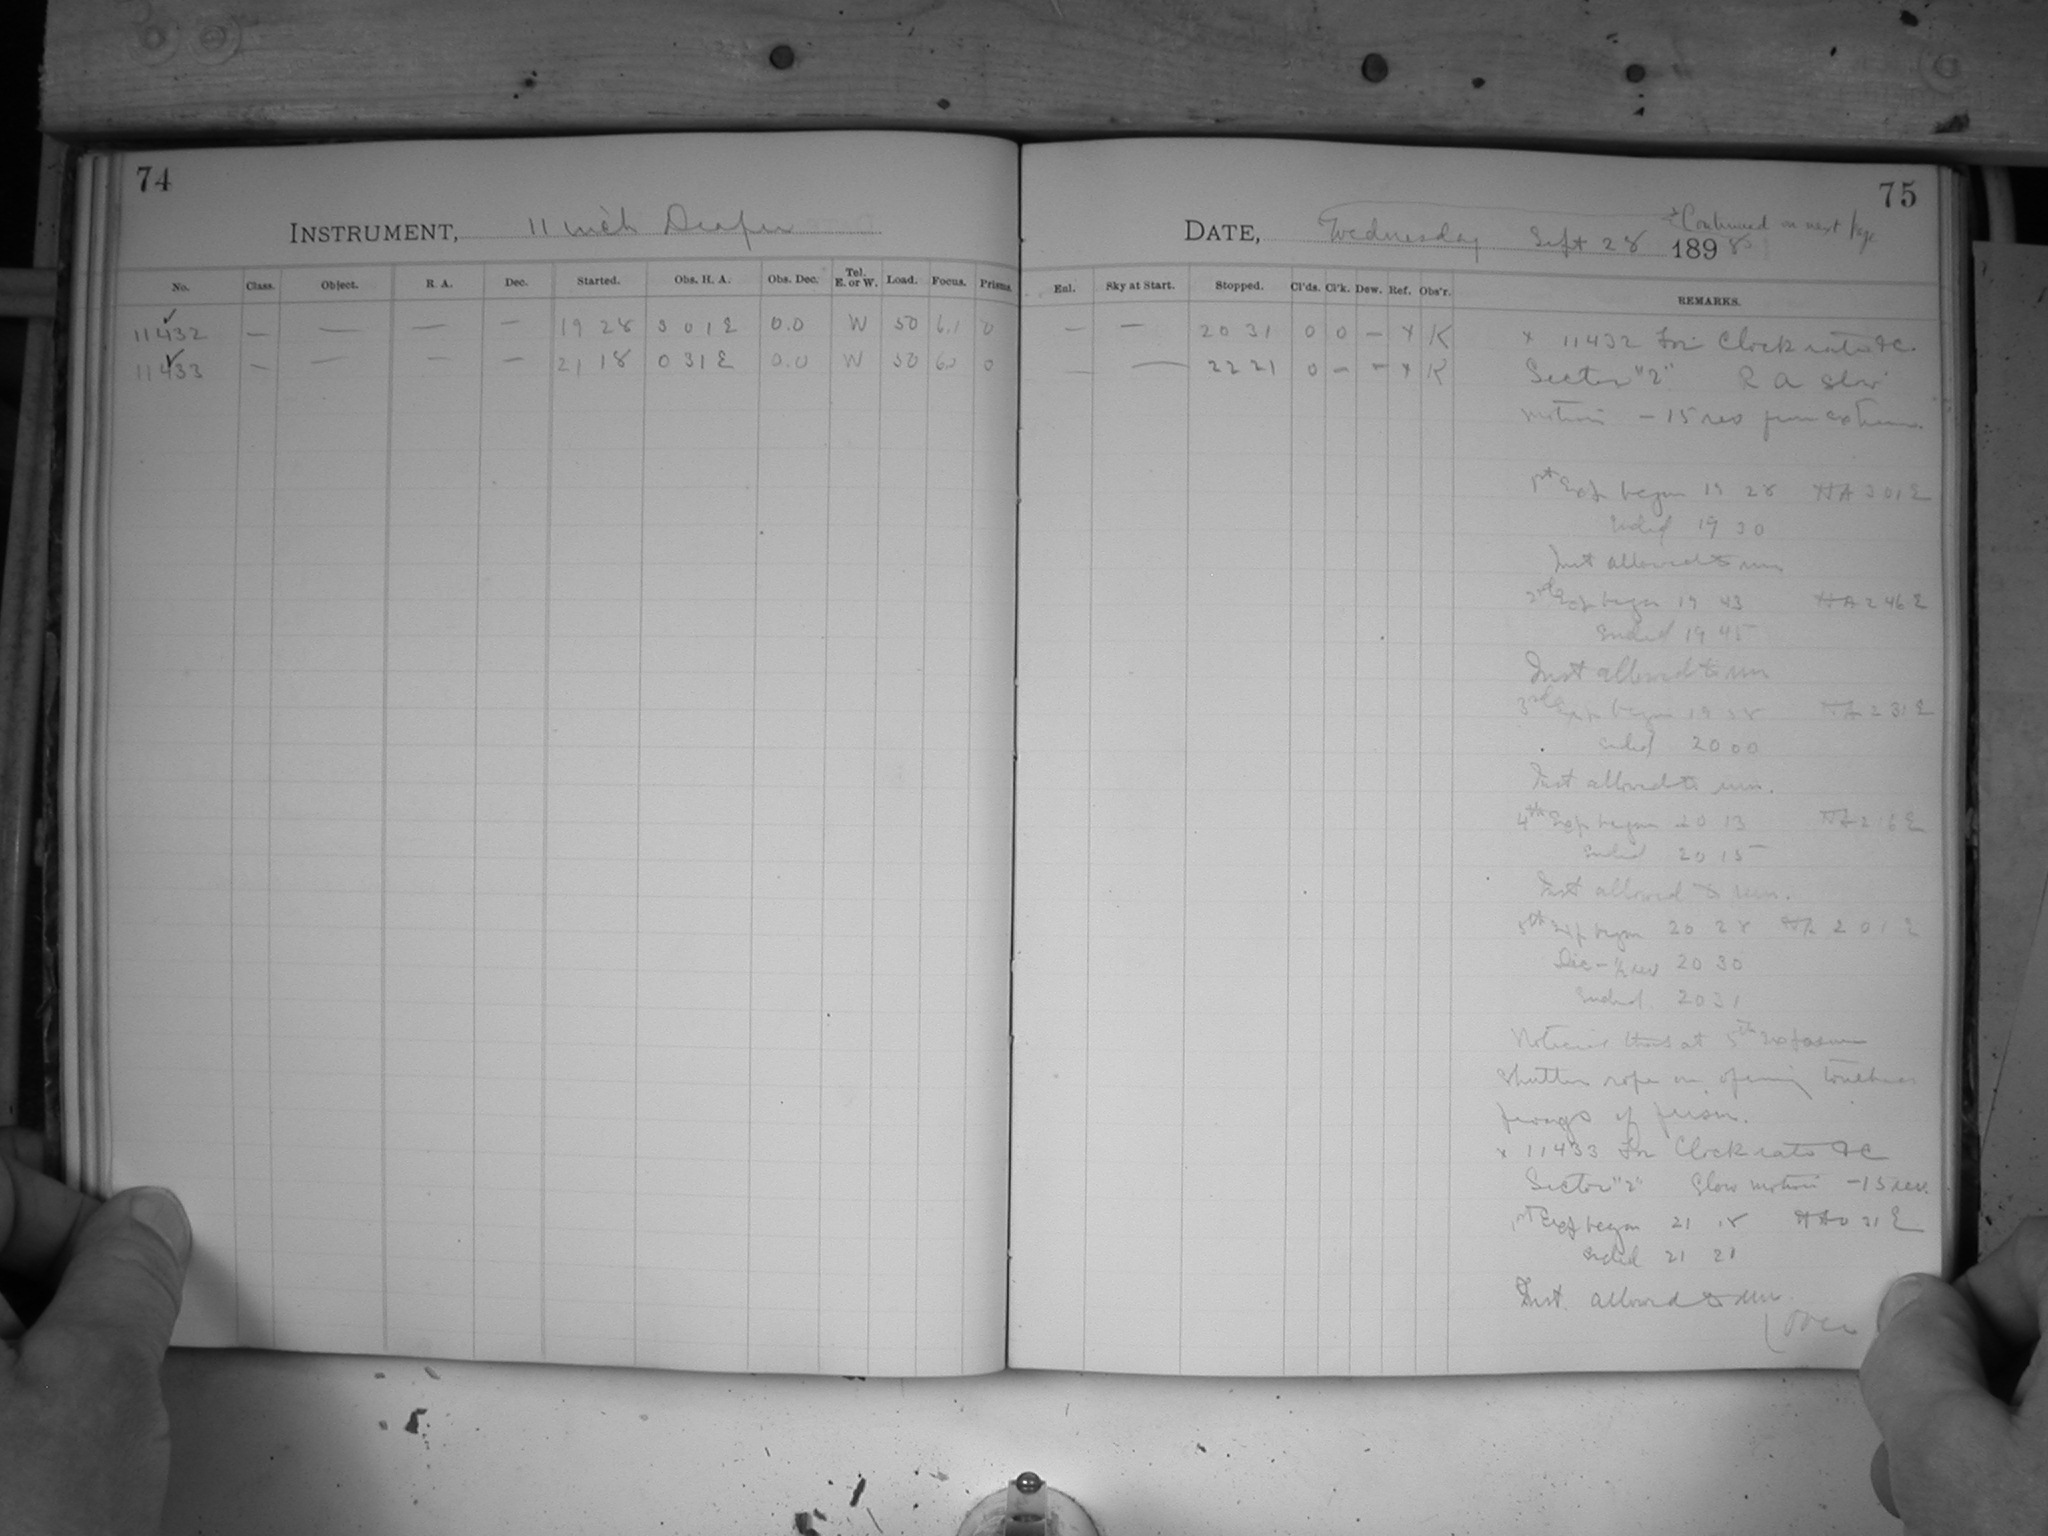 74
INSTRUMENT, 11 inch Draper
No. Class. Object. R. A. Dec. Started. Obs. H. A. Obs. Dec. Tel. E. or W. Load. Focus. Prisms.
11432 — — — — 19 28 3 01 E 0.0 W 50 6.1 0
11433 — — — — 21 18 0 31 E 0.0 W 50 6.0 0
75
Continued on next page
DATE, Wednesday Sept 28 1898
Enl. Sky at Start. Stopped. Cl'ds. Cl'k. Dew. Ref. Obs'r. REMARKS.
— — 20 31 0 0 — x K x 11432 For Clock rate &c.
— — 22 21 0 — — x K Sector "2" R A slow
motion — 15 rev from extreme.
1st Exp began 19 28 HA 3 01 E
Ended 19 30
Inst allowed to run
2nd Exp began 19 43 HA 2 46 E
Ended 19 45
Inst allowed to run
3rd Exp began 19 58 HA 2 31 E
Ended 20 00
Inst allowed to run.
4th Exp began 20 13 HA 2 16 E
Ended 20 15
Inst allowed to run.
5th Exp began 20 28 HA 2 01 E
Dec - ½ rev 20 30
Ended 20 31
Noticed that at 5th Exposure
shutter rope on opening touched
prongs of prism.
x 11433 For Clock rate &c
Sector "2" Slow motion - 15 rev.
1st Exp began 21 18 HA 0 31 E
Ended 21 21
Inst. allowed to run.
(Over